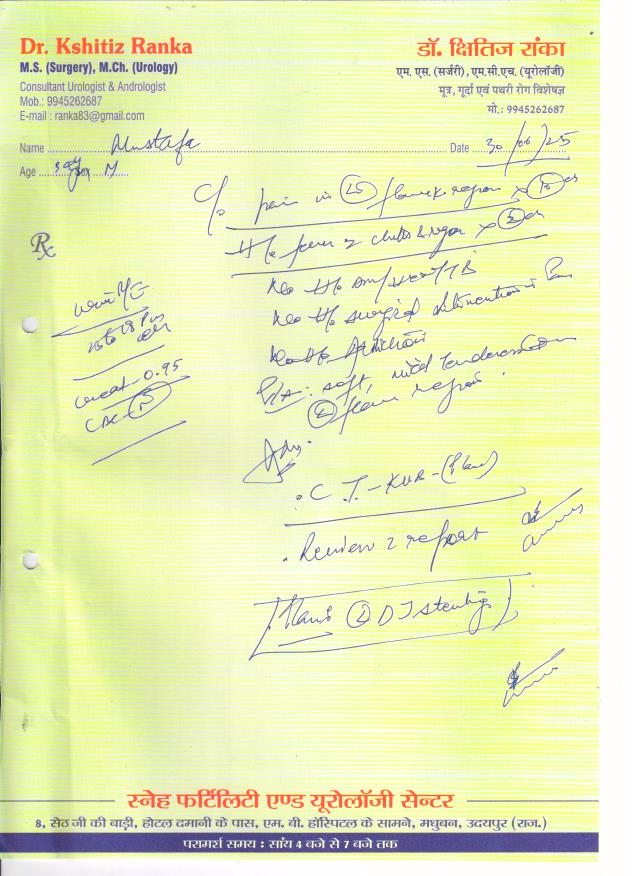 Dr. Kshitiz Ranka
M.S. (Surgery), M.Ch. (Urology)
Consultant Urologist & Andrologist
Mob.: 9945262687
E-mail : ranka83@gmail.com
डॉ. क्षितिज रांका
एम. एस. (सर्जरी), एम.सी.एच. (यूरोलॉजी)
मूत्र, गूर्दा एवं पथरी रोग विशेषज्ञ
मो.: 9945262687
Name Mustafa Date 30/06/25
Age Sex M
C/o pain in flank region x
H/o fever chills & rigor x
Rx
No H/o TB
No H/o surgical intervention in
No H/o
P/A: soft, mild tenderness
flank region.
creat - 0.95
CBC - N
Adv.
. C.T. - KUB - (Plain)
. Review c report
Plan: L DJ stenting
स्नेह फर्टिलिटी एण्ड यूरोलॉजी सेन्टर
8, सेठ जी की बाड़ी, होटल दमानी के पास, एम. बी. हॉस्पिटल के सामने, मधुबन, उदयपुर (राज.)
परामर्श समय : सांय 4 बजे से 7 बजे तक